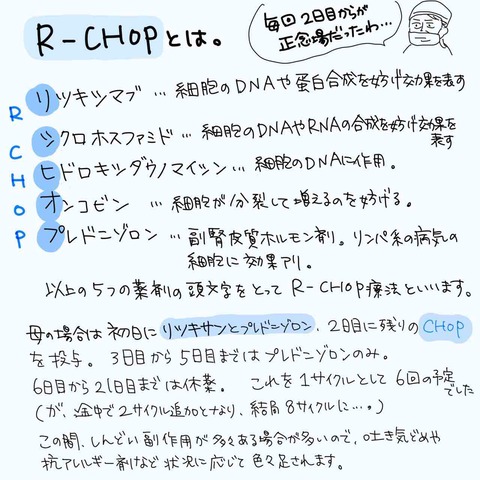 R-CHOPとは。
毎回2日目からが
正念場だったわ…
R リツキシマブ … 細胞のDNAや蛋白合成を妨げ効果を表す
C シクロホスファミド … 細胞のDNAやRNAの合成を妨げ効果を
表す
H ヒドロキシダウノマイシン … 細胞のDNAに作用。
O オンコビン … 細胞が分裂して増えるのを妨げる。
P プレドニゾロン … 副腎皮質ホルモン剤。リンパ系の病気の
細胞に効果アリ。
以上の5つの薬剤の頭文字をとってR-CHOP療法といいます。
母の場合は初日にリツキサンとプレドニゾロン、2日目に残りのCHOP
を投与。3日目から5日目まではプレドニゾロンのみ。
6日目から21日目までは休薬。これを1サイクルとして6回の予定
でした
(が、途中で2サイクル追加となり、結局8サイクルに…。)
この間、しんどい副作用が多々ある場合が多いので、吐き気どめや
抗アレルギー剤など状況に応じて色々足されます。